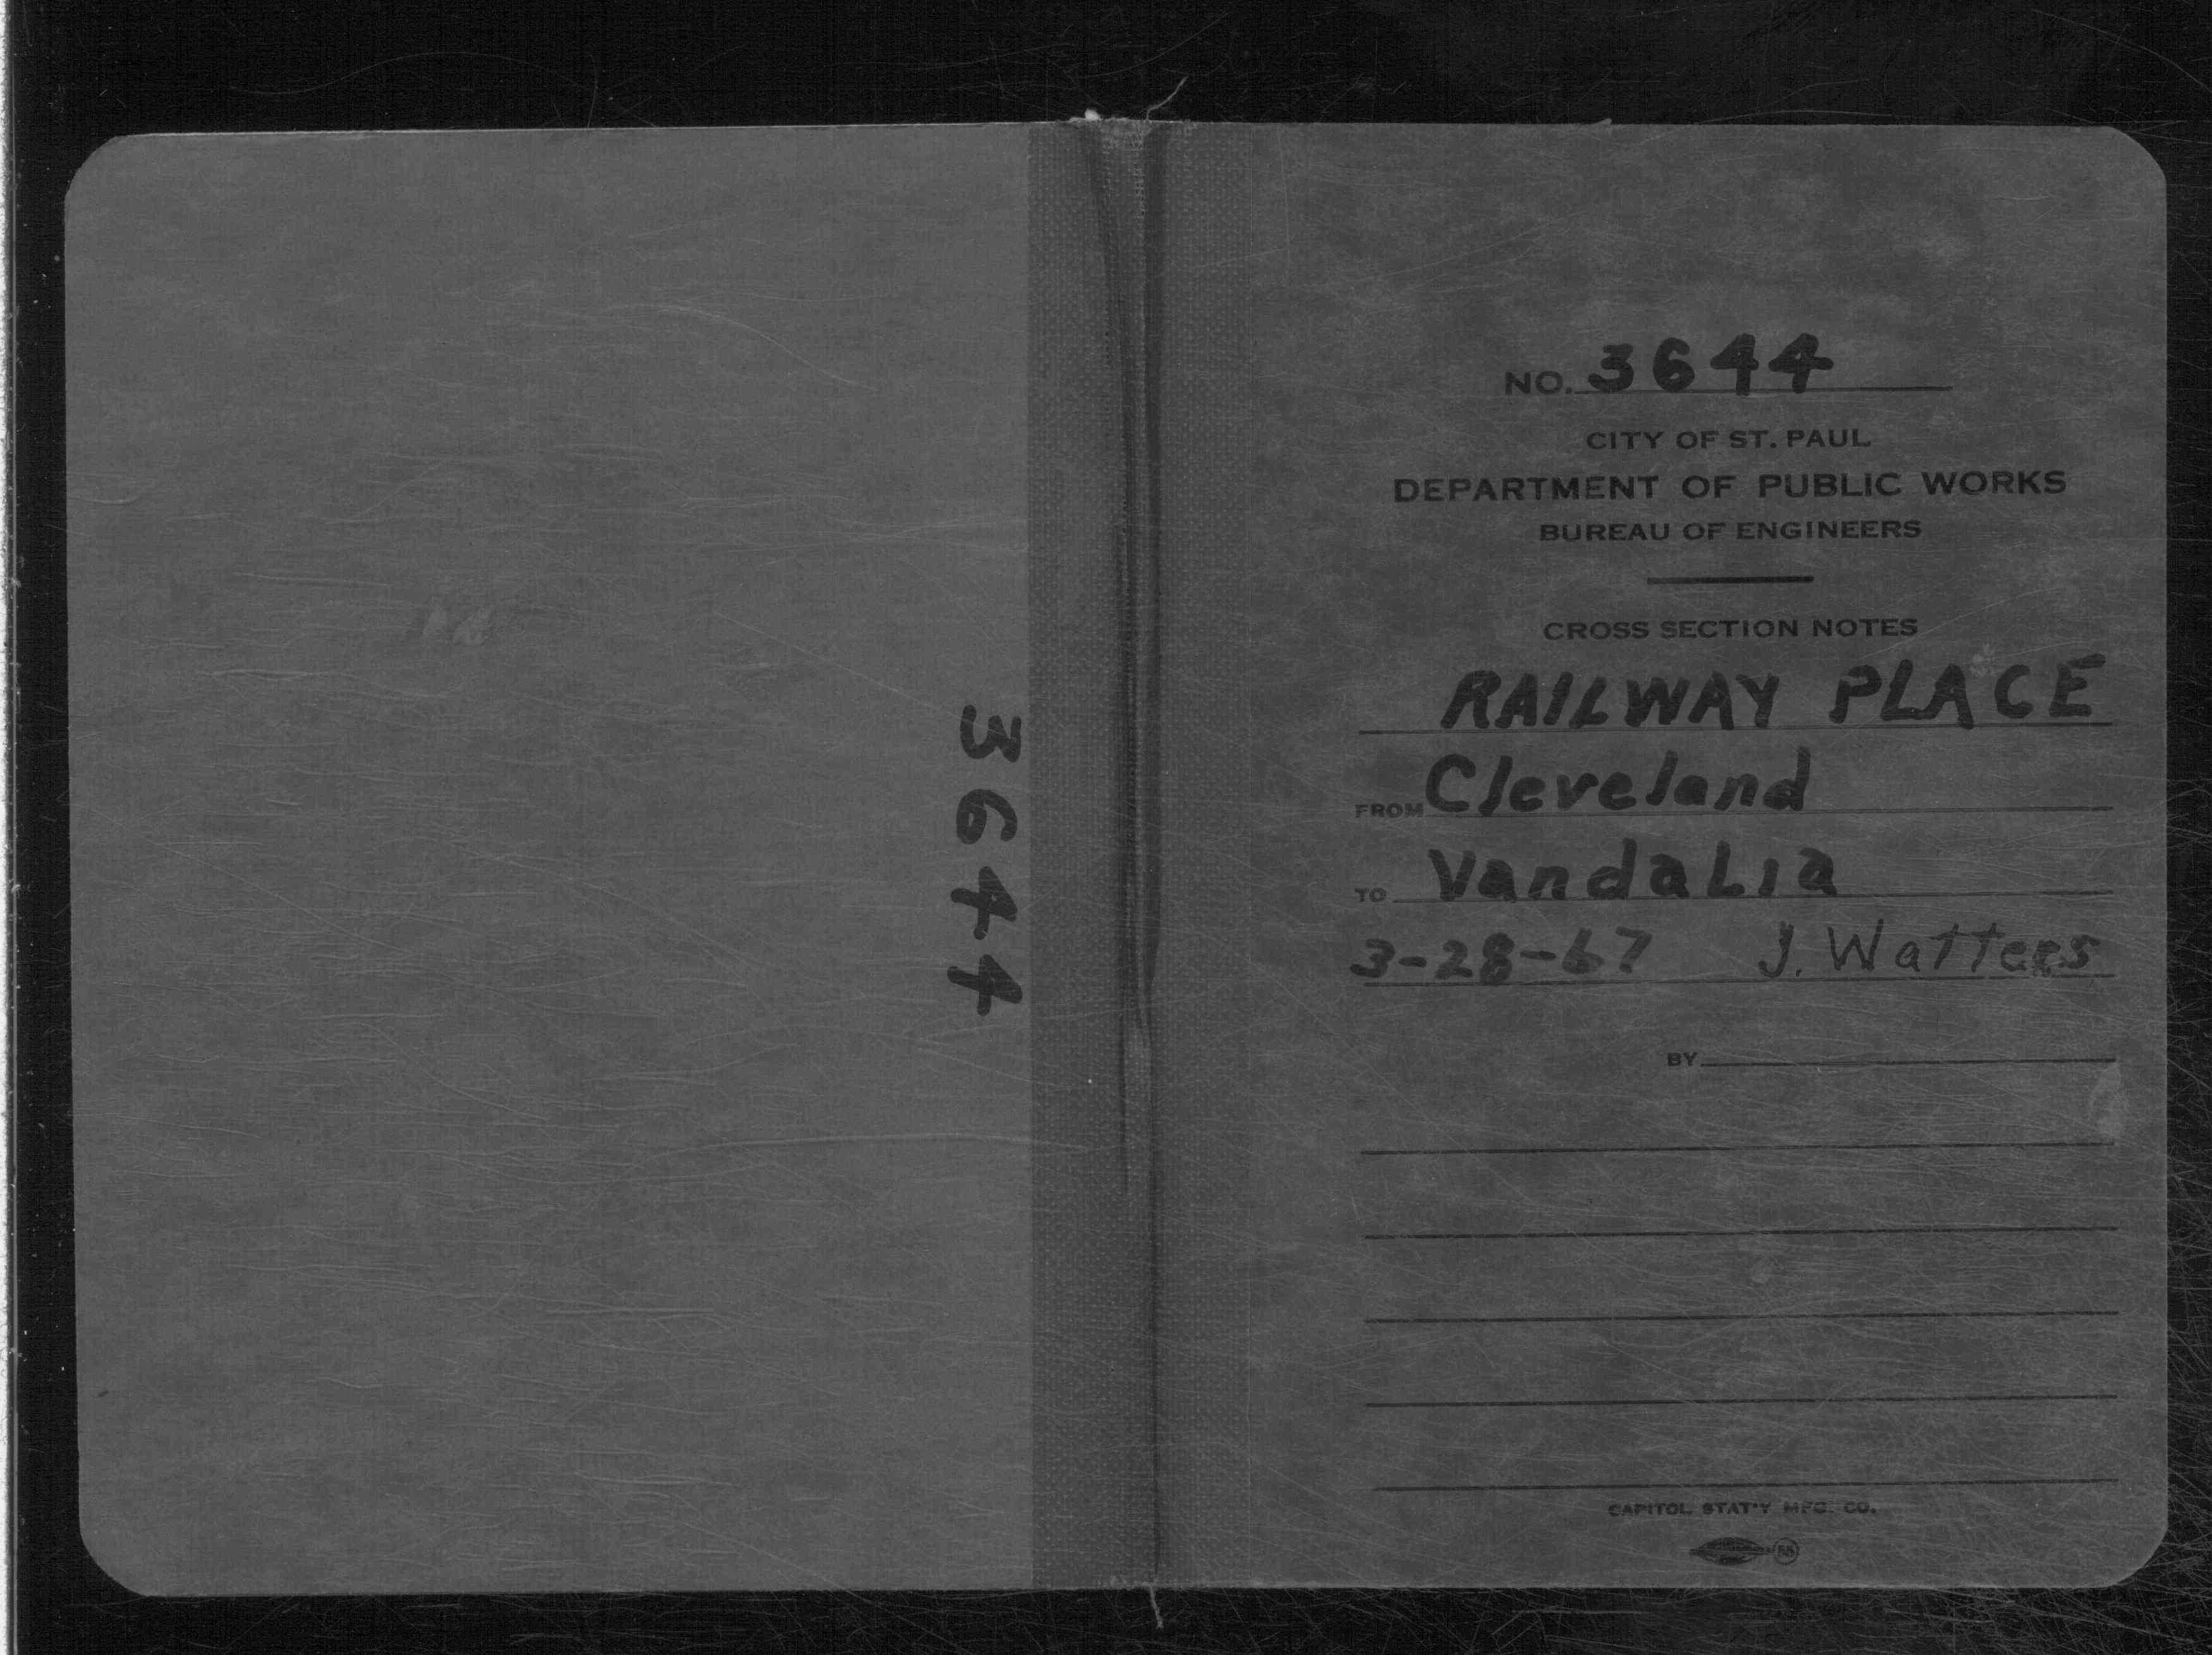 3644
NO. 3644
CITY OF ST. PAUL
DEPARTMENT OF PUBLIC WORKS
BUREAU OF ENGINEERS
CROSS SECTION NOTES
RAILWAY PLACE
FROM Cleveland
TO Vandalia
3-28-67 J. Watters
BY
CAPITOL STAT'Y MFG. CO.